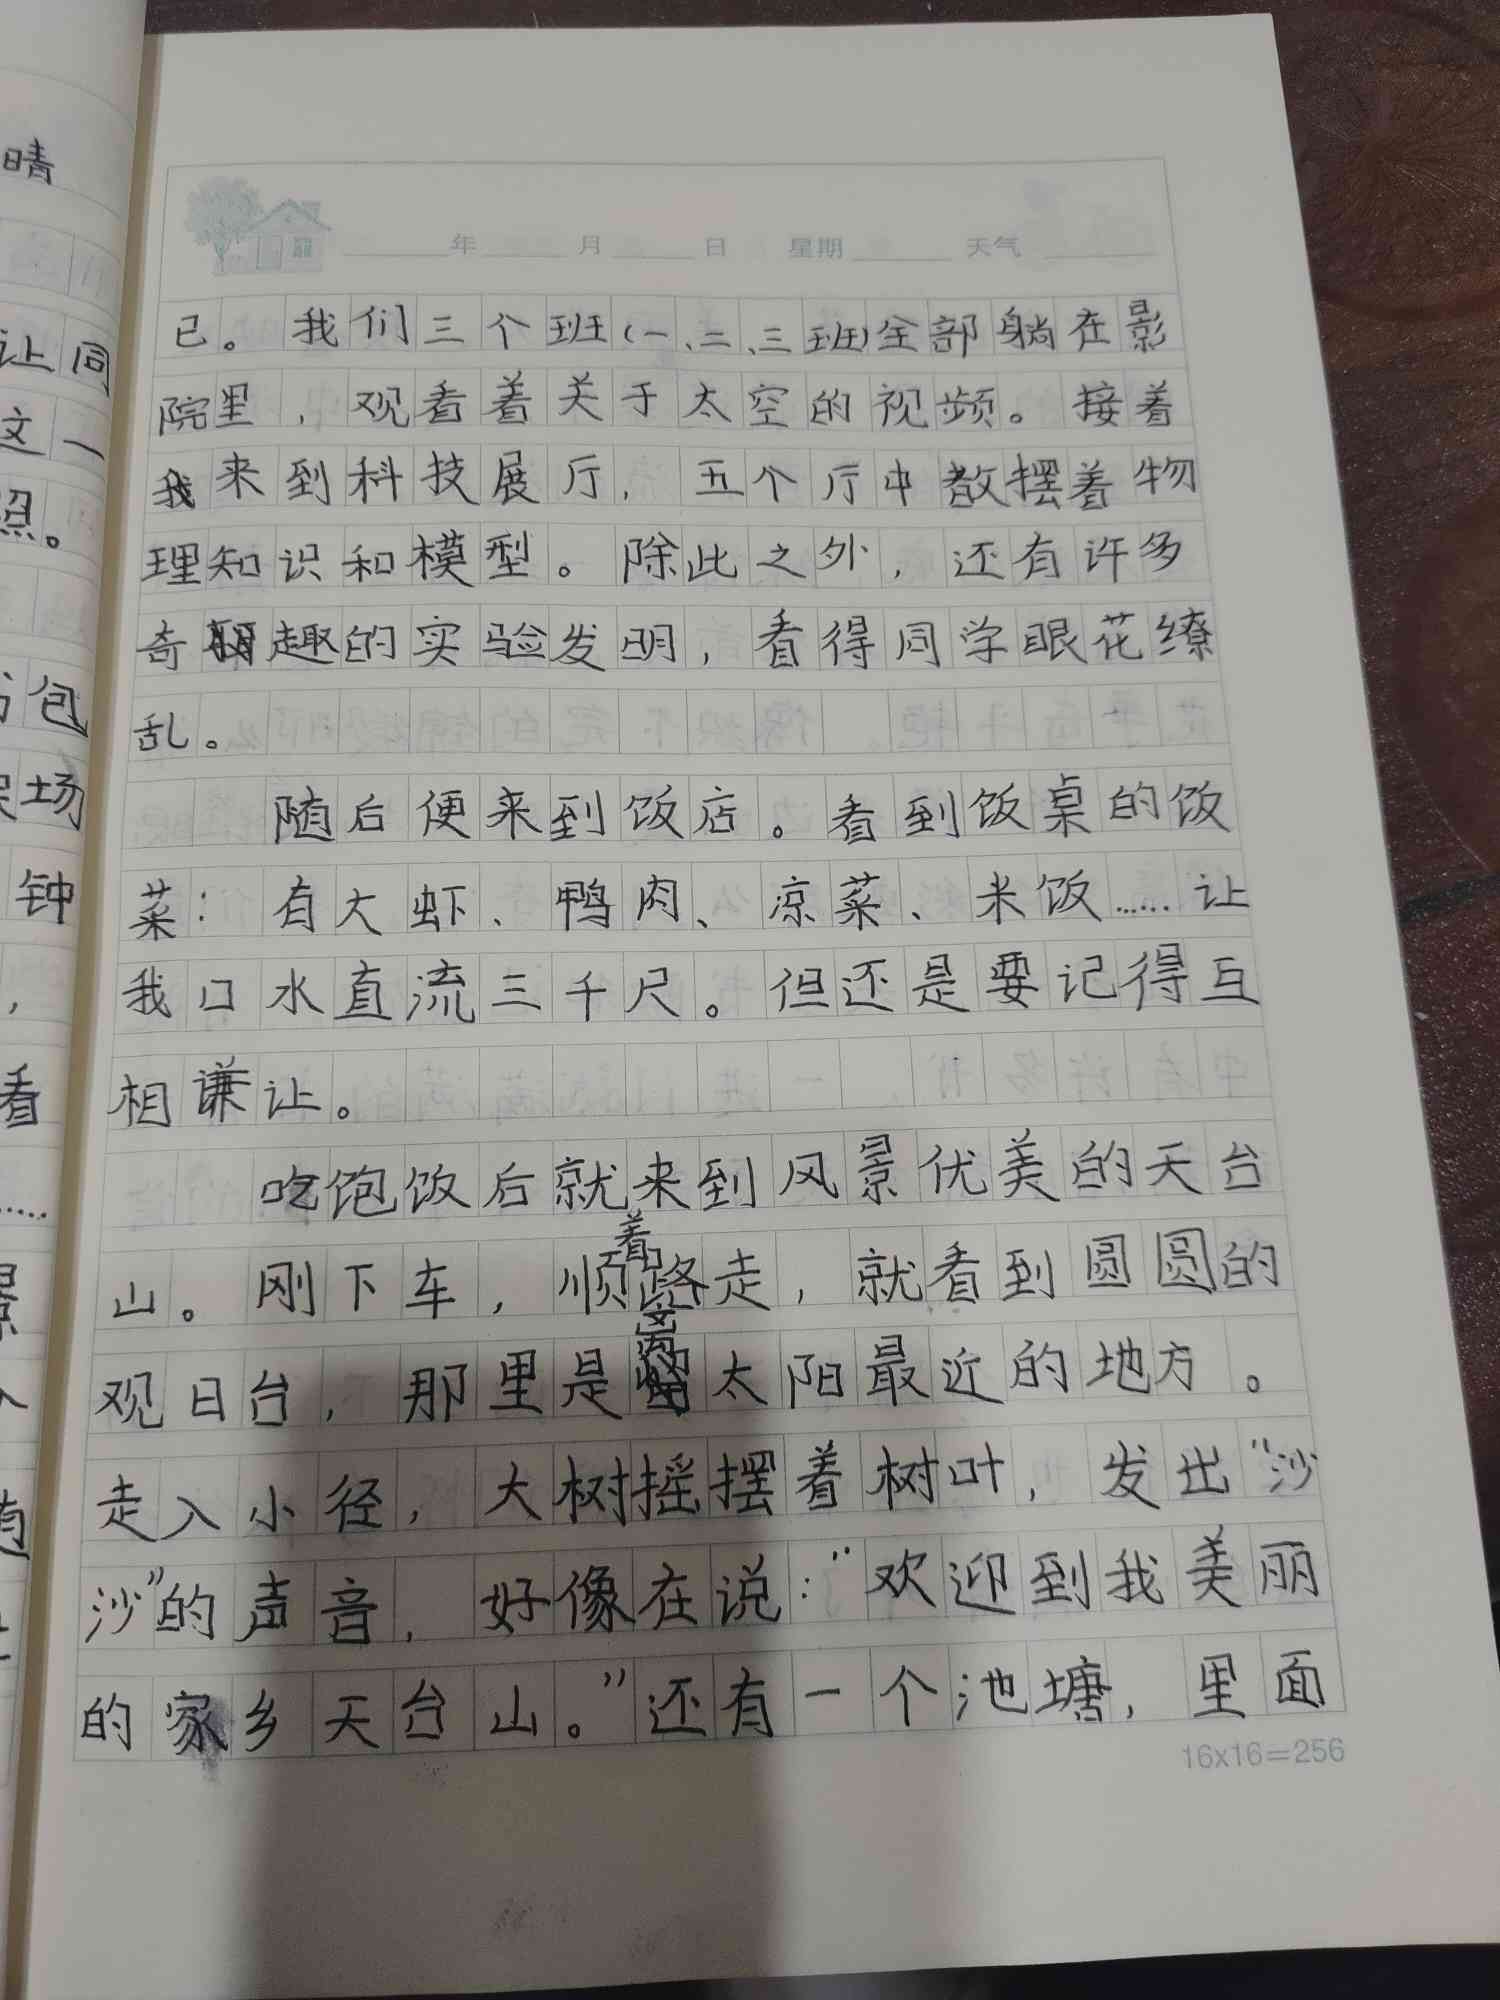 晴
让同
这一
照。
包
场
钟
看
……
年 月 日 星期 天气
已。我们三个班(一、二、三班)全部躺在影
院里,观看着关于太空的视频。接着
我来到科技展厅,五个厅中都摆着物
理知识和模型。除此之外,还有许多
奇趣的实验发明,看得同学眼花缭
乱。
随后便来到饭店。看到饭桌的饭
菜:有大虾、鸭肉、凉菜、米饭……让
我口水直流三千尺。但还是要记得互
相谦让。
吃饱饭后就来到风景优美的天台
山。刚下车,顺着路走,就看到圆圆的
观日台,那里是离太阳最近的地方。
走入小径,大树摇摆着树叶,发出“沙
沙”的声音,好像在说:“欢迎到我美丽
的家乡天台山。”还有一个池塘,里面
16x16=256